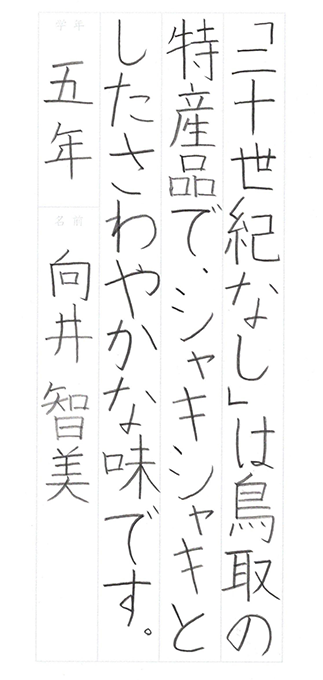 「二十世紀なし」は鳥取の
特産品で、シャキシャキと
したさわやかな味です。
学年
五年
名前
向井 智美